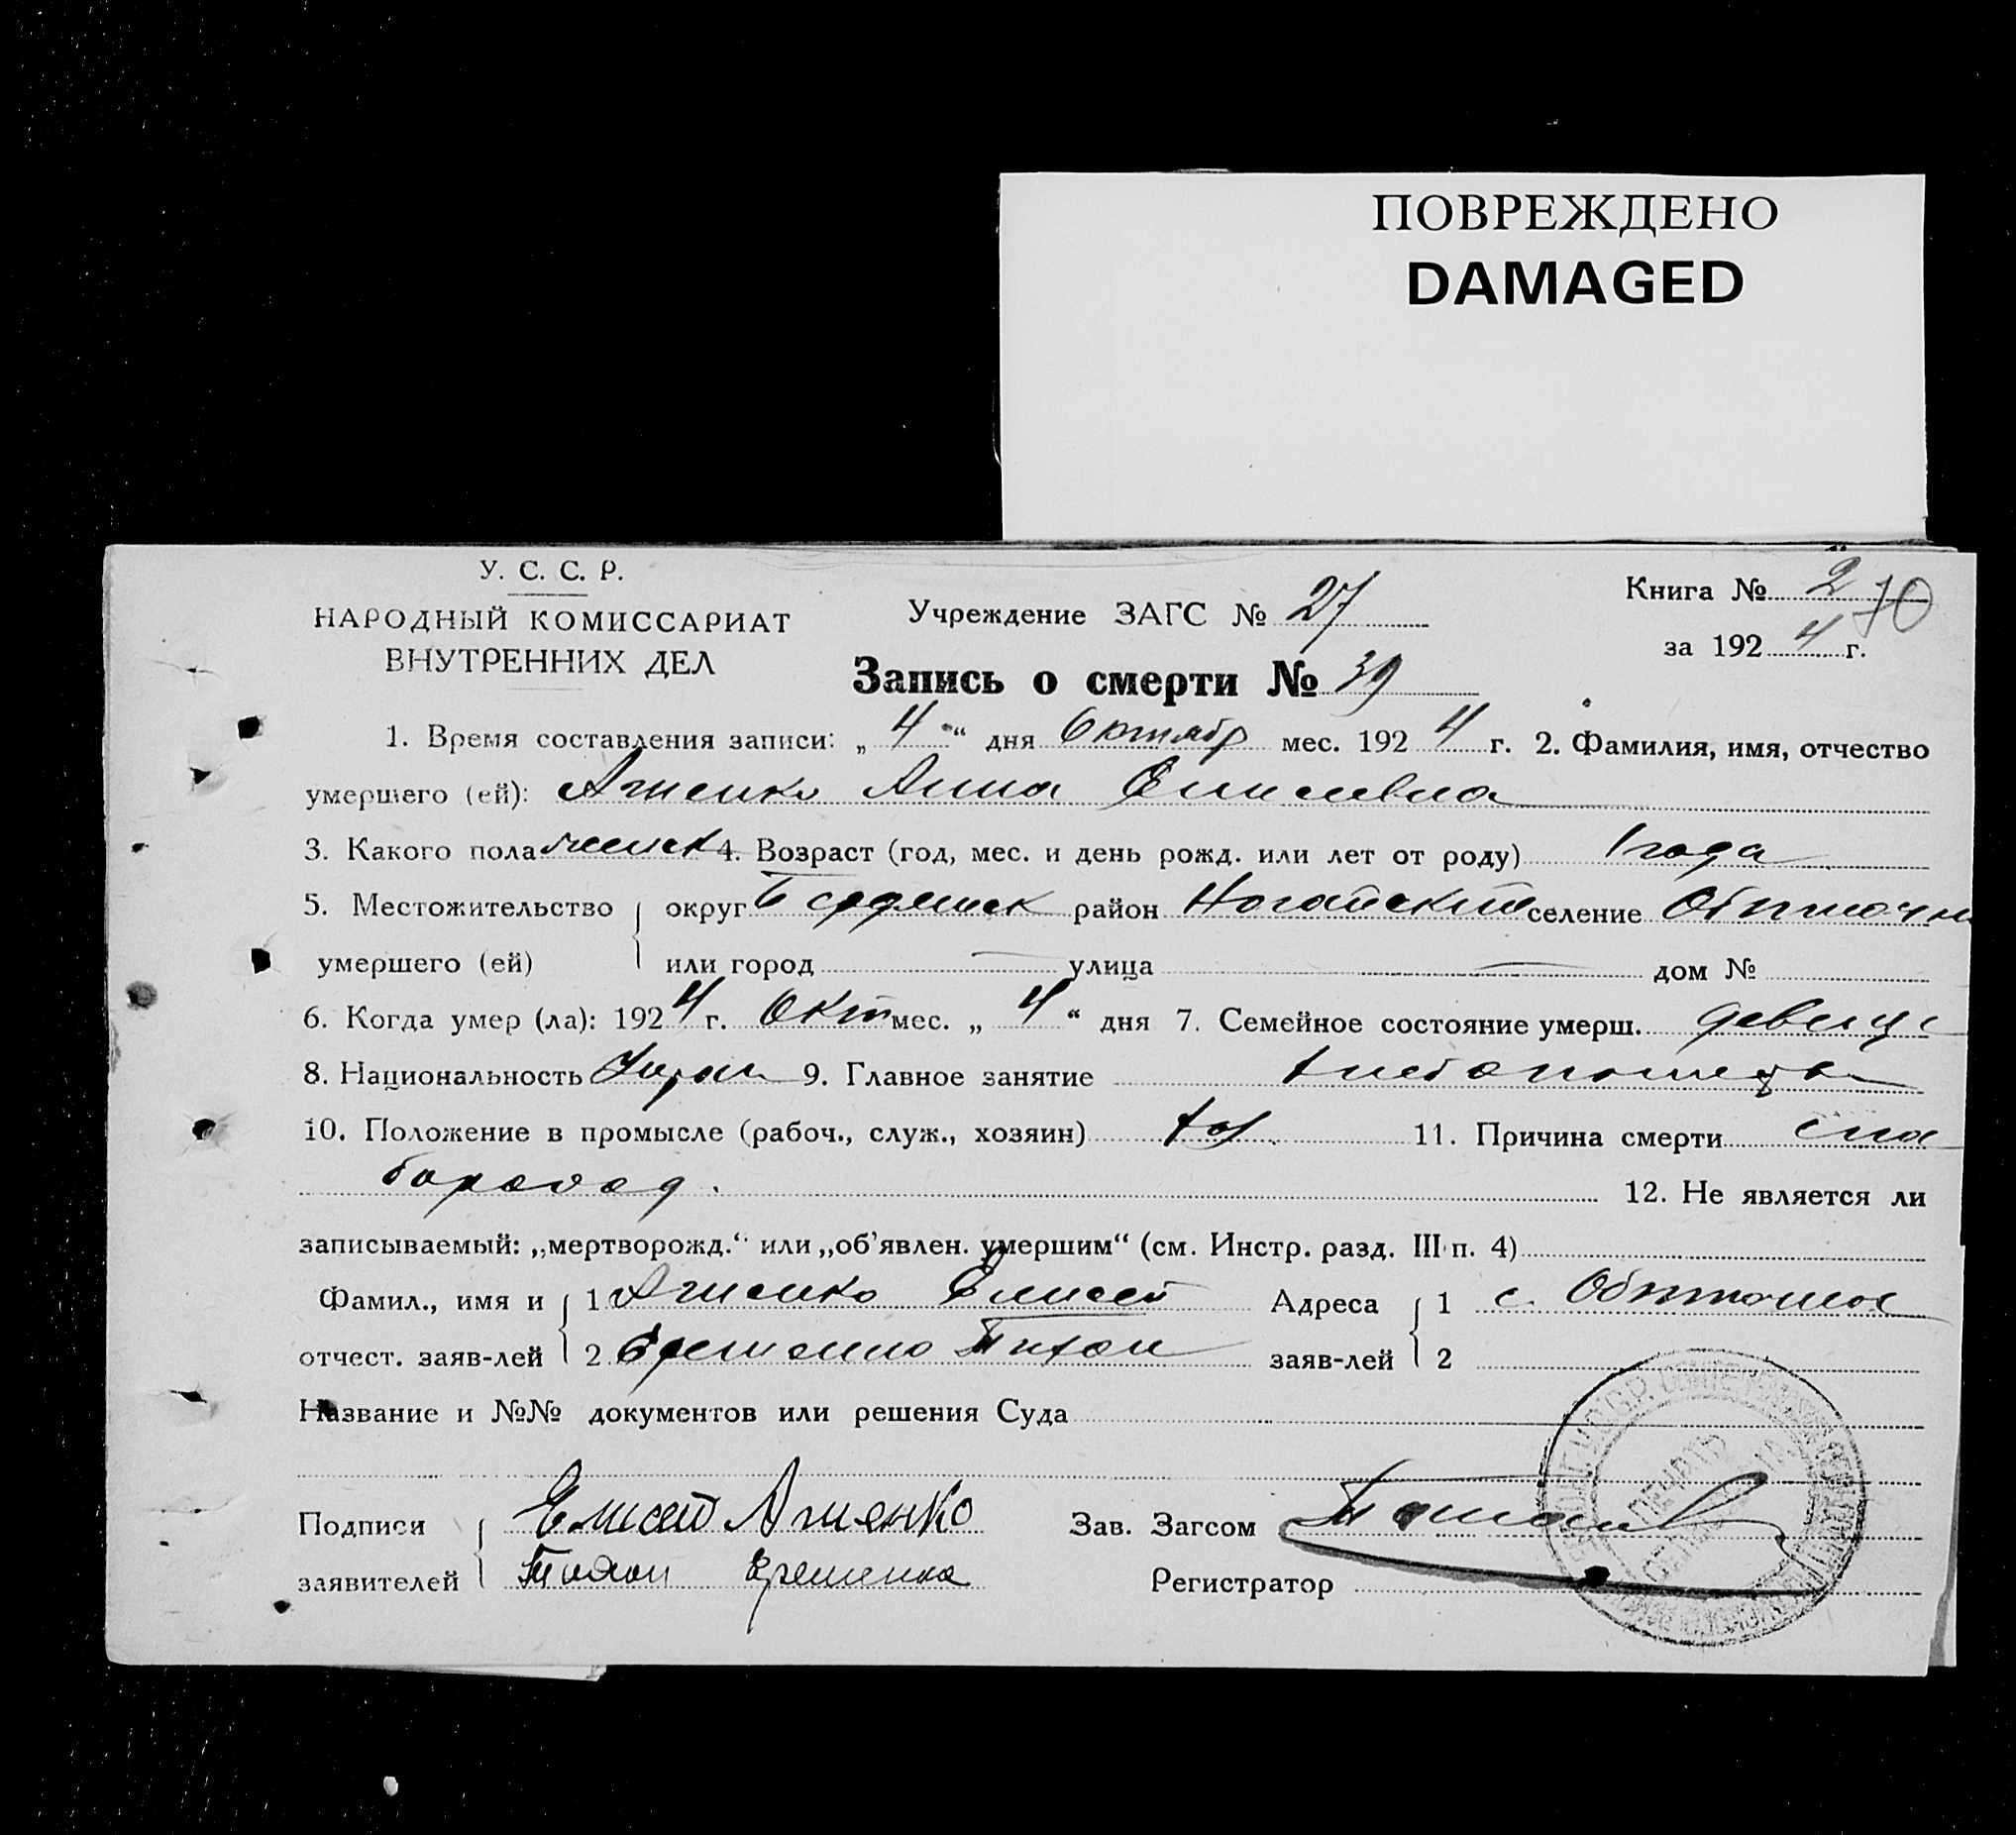 ПОВРЕЖДЕНО
DAMAGED
У. С. С. Р.
НАРОДНЫЙ КОМИССАРИАТ
ВНУТРЕННИХ ДЕЛ
Учреждение ЗАГС № 27
Книга № 2 70
за 1924 г.
Запись о смерти № 39
1. Время составления записи: „4“ дня Октябр мес. 1924 г. 2. Фамилия, имя, отчество
умершего (ей): Анна
3. Какого пола женск 4. Возраст (год, мес. и день рожд. или лет от роду) 1 года
5. Местожительство округ Бердянск район Ногайский селение Обиточн
умершего (ей) или город — улица — дом №
6. Когда умер (ла): 1924 г. Окт мес. „4“ дня 7. Семейное состояние умерш. девица
8. Национальность Укра 9. Главное занятие хлебопашество
10. Положение в промысле (рабоч., служ., хозяин) хоз. 11. Причина смерти
12. Не является ли
записываемый: „мертворожд.“ или „об'явлен. умершим“ (см. Инстр. разд. III п. 4)
Фамил., имя и 1 Елисей Адреса 1 с. Обиточное
отчест. заяв-лей 2 Еременко Тихон заяв-лей 2
Название и №№ документов или решения Суда
Подписи Елисей
заявителей Тихон Еременко
Зав. Загсом
Регистратор